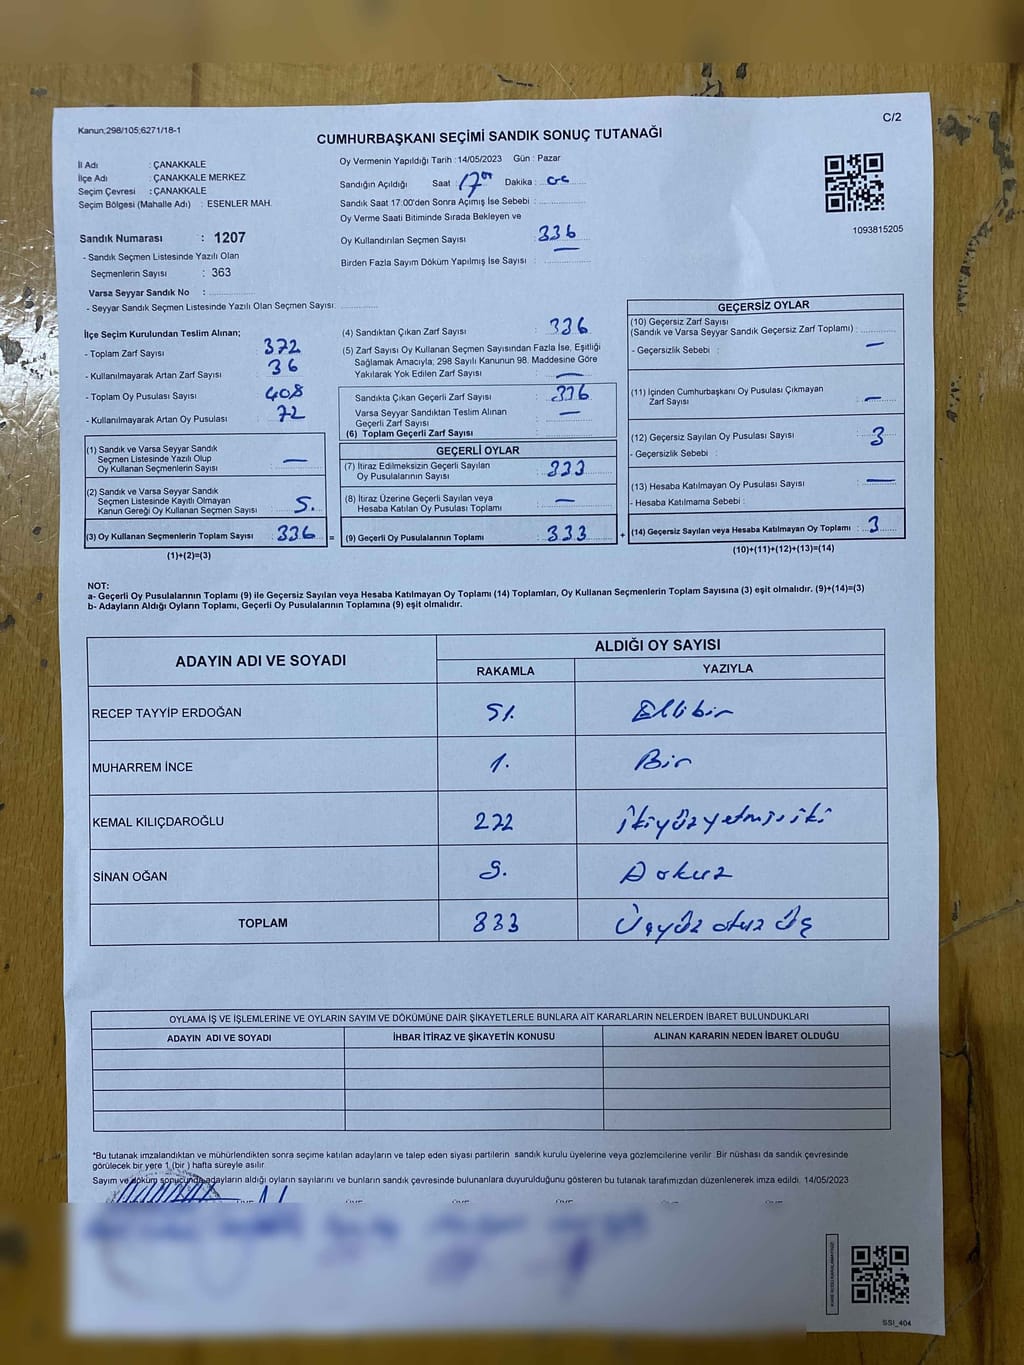 Kanun;298/105;6271/18-1
C/2
CUMHURBAŞKANI SEÇİMİ SANDIK SONUÇ TUTANAĞI
İl Adı : ÇANAKKALE
İlçe Adı : ÇANAKKALE MERKEZ
Seçim Çevresi : ÇANAKKALE
Seçim Bölgesi (Mahalle Adı) : ESENLER MAH.
Oy Vermenin Yapıldığı Tarih :14/05/2023 Gün : Pazar
Sandığın Açıldığı Saat : 17 Dakika :
Sandık Saat 17:00'den Sonra Açımış İse Sebebi :
Oy Verme Saati Bitiminde Sırada Bekleyen ve
Oy Kullandırılan Seçmen Sayısı : 336
Birden Fazla Sayım Döküm Yapılmış İse Sayısı : —
1093815205
Sandık Numarası : 1207
- Sandık Seçmen Listesinde Yazılı Olan
Seçmenlerin Sayısı : 363
Varsa Seyyar Sandık No :
- Seyyar Sandık Seçmen Listesinde Yazılı Olan Seçmen Sayısı:
İlçe Seçim Kurulundan Teslim Alınan;
- Toplam Zarf Sayısı : 372
- Kullanılmayarak Artan Zarf Sayısı : 36
- Toplam Oy Pusulası Sayısı : 408
- Kullanılmayarak Artan Oy Pusulası : 72
(1) Sandık ve Varsa Seyyar Sandık
Seçmen Listesinde Yazılı Olup
Oy Kullanan Seçmenlerin Sayısı : —
(2) Sandık ve Varsa Seyyar Sandık
Seçmen Listesinde Kayıtlı Olmayan
Kanun Gereği Oy Kullanan Seçmen Sayısı : 5.
(3) Oy Kullanan Seçmenlerin Toplam Sayısı : 336 =
(1)+(2)=(3)
(4) Sandıktan Çıkan Zarf Sayısı : 336
(5) Zarf Sayısı Oy Kullanan Seçmen Sayısından Fazla İse, Eşitliği
Sağlamak Amacıyla; 298 Sayılı Kanunun 98. Maddesine Göre
Yakılarak Yok Edilen Zarf Sayısı : —
Sandıkta Çıkan Geçerli Zarf Sayısı : 336
Varsa Seyyar Sandıktan Teslim Alınan
Geçerli Zarf Sayısı : —
(6) Toplam Geçerli Zarf Sayısı :
GEÇERLİ OYLAR
(7) İtiraz Edilmeksizin Geçerli Sayılan
Oy Pusulalarının Sayısı : 333
(8) İtiraz Üzerine Geçerli Sayılan veya
Hesaba Katılan Oy Pusulası Toplamı : —
(9) Geçerli Oy Pusulalarının Toplamı : 333 +
GEÇERSİZ OYLAR
(10) Geçersiz Zarf Sayısı
(Sandık ve Varsa Seyyar Sandık Geçersiz Zarf Toplamı) :
- Geçersizlik Sebebi : —
(11) İçinden Cumhurbaşkanı Oy Pusulası Çıkmayan
Zarf Sayısı : —
(12) Geçersiz Sayılan Oy Pusulası Sayısı : 3
- Geçersizlik Sebebi :
(13) Hesaba Katılmayan Oy Pusulası Sayısı : —
- Hesaba Katılmama Sebebi :
(14) Geçersiz Sayılan veya Hesaba Katılmayan Oy Toplamı : 3
(10)+(11)+(12)+(13)=(14)
NOT:
a- Geçerli Oy Pusulalarının Toplamı (9) ile Geçersiz Sayılan veya Hesaba Katılmayan Oy Toplamı (14) Toplamları, Oy Kullanan Seçmenlerin Toplam Sayısına (3) eşit olmalıdır. (9)+(14)=(3)
b- Adayların Aldığı Oyların Toplamı, Geçerli Oy Pusulalarının Toplamına (9) eşit olmalıdır.
ADAYIN ADI VE SOYADI
ALDIĞI OY SAYISI
RAKAMLA YAZIYLA
RECEP TAYYİP ERDOĞAN 51. Ellibir
MUHARREM İNCE 1. Bir
KEMAL KILIÇDAROĞLU 272 ikiyüzyetmişiki
SİNAN OĞAN 9. Dokuz
TOPLAM 333 Üçyüz otuz üç
OYLAMA İŞ VE İŞLEMLERİNE VE OYLARIN SAYIM VE DÖKÜMÜNE DAİR ŞİKAYETLERLE BUNLARA AİT KARARLARIN NELERDEN İBARET BULUNDUKLARI
ADAYIN ADI VE SOYADI İHBAR İTİRAZ VE ŞİKAYETİN KONUSU ALINAN KARARIN NEDEN İBARET OLDUĞU
*Bu tutanak imzalandıktan ve mühürlendikten sonra seçime katılan adayların ve talep eden siyasi partilerin sandık kurulu üyelerine veya gözlemcilerine verilir. Bir nüshası da sandık çevresinde
görülecek bir yere 1 (bir ) hafta süreyle asılır.
Sayım ve döküm sonucunda adayların aldığı oyların sayılarını ve bunların sandık çevresinde bulunanlara duyurulduğunu gösteren bu tutanak tarafımızdan düzenlenerek imza edildi. 14/05/2023
SSI_404